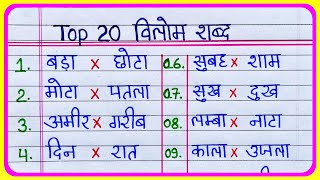 Top 20 विलोम शब्द
1. बड़ा x छोटा
2. मोटा x पतला
3. अमीर x गरीब
4. दिन x रात
06. सुबह x शाम
07. सुख x दुख
08. लम्बा x नाटा
09. काला x उजला